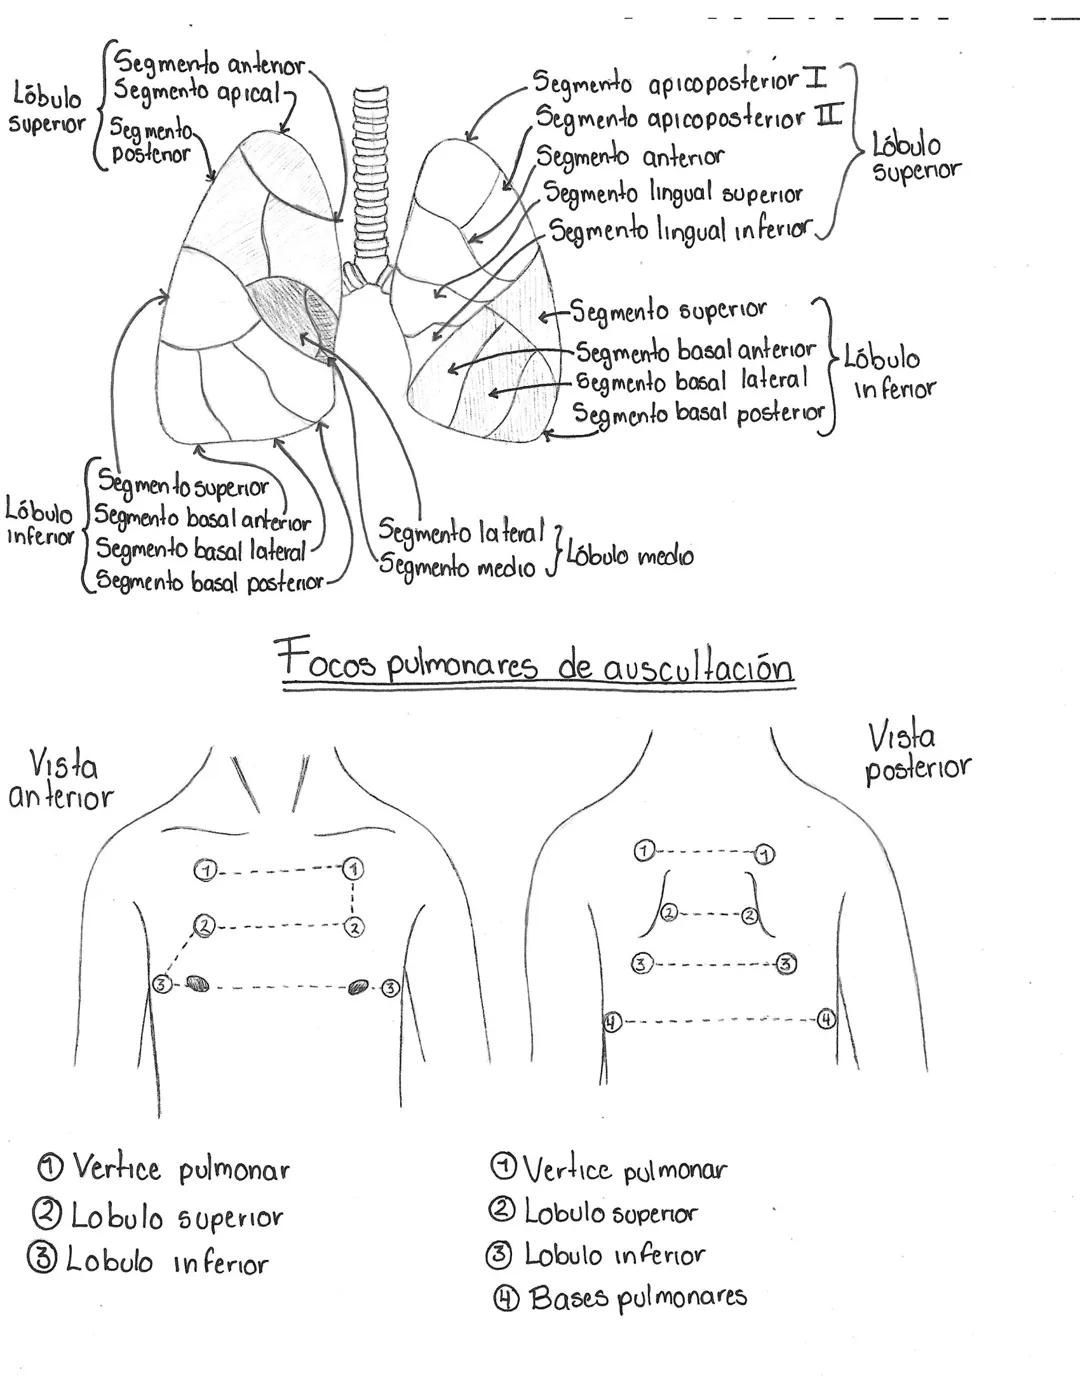 Segmento anterior
Segmento apical
Lóbulo
superior
Segmento
posterior
Segmento apicoposterior I
Segmento apicoposterior II
Segmento anterior
Segmento lingual superior
Segmento lingual inferior
Lóbulo
superior
Segmento superior
Segmento basal anterior
Segmento basal lateral
Segmento basal posterior
Lóbulo
inferior
Lóbulo
inferior
Segmento superior
Segmento basal anterior
Segmento basal lateral
Segmento basal posterior
Segmento lateral
Segmento medio
Lóbulo medio
Focos pulmonares de auscultación
Vista
anterior
Vista
posterior
1 1
2 2
3 3
1 1
2 2
3 3
4 4
1 Vertice pulmonar
2 Lobulo superior
3 Lobulo inferior
1 Vertice pulmonar
2 Lobulo superior
3 Lobulo inferior
4 Bases pulmonares